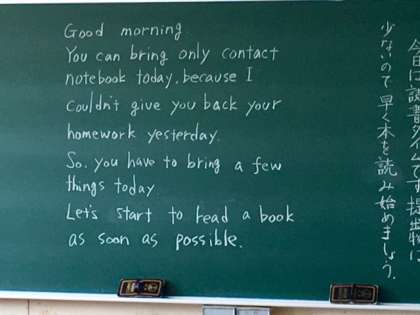 Good morning.
You can bring only contact
notebook today, because I
Couldn't give you back your
homework yesterday.
So, you have to bring a few
things today
Let's start to read a book
as soon as possible.
今日は読書タイムです。提出物は
少ないので早く本を読み始めましょう。